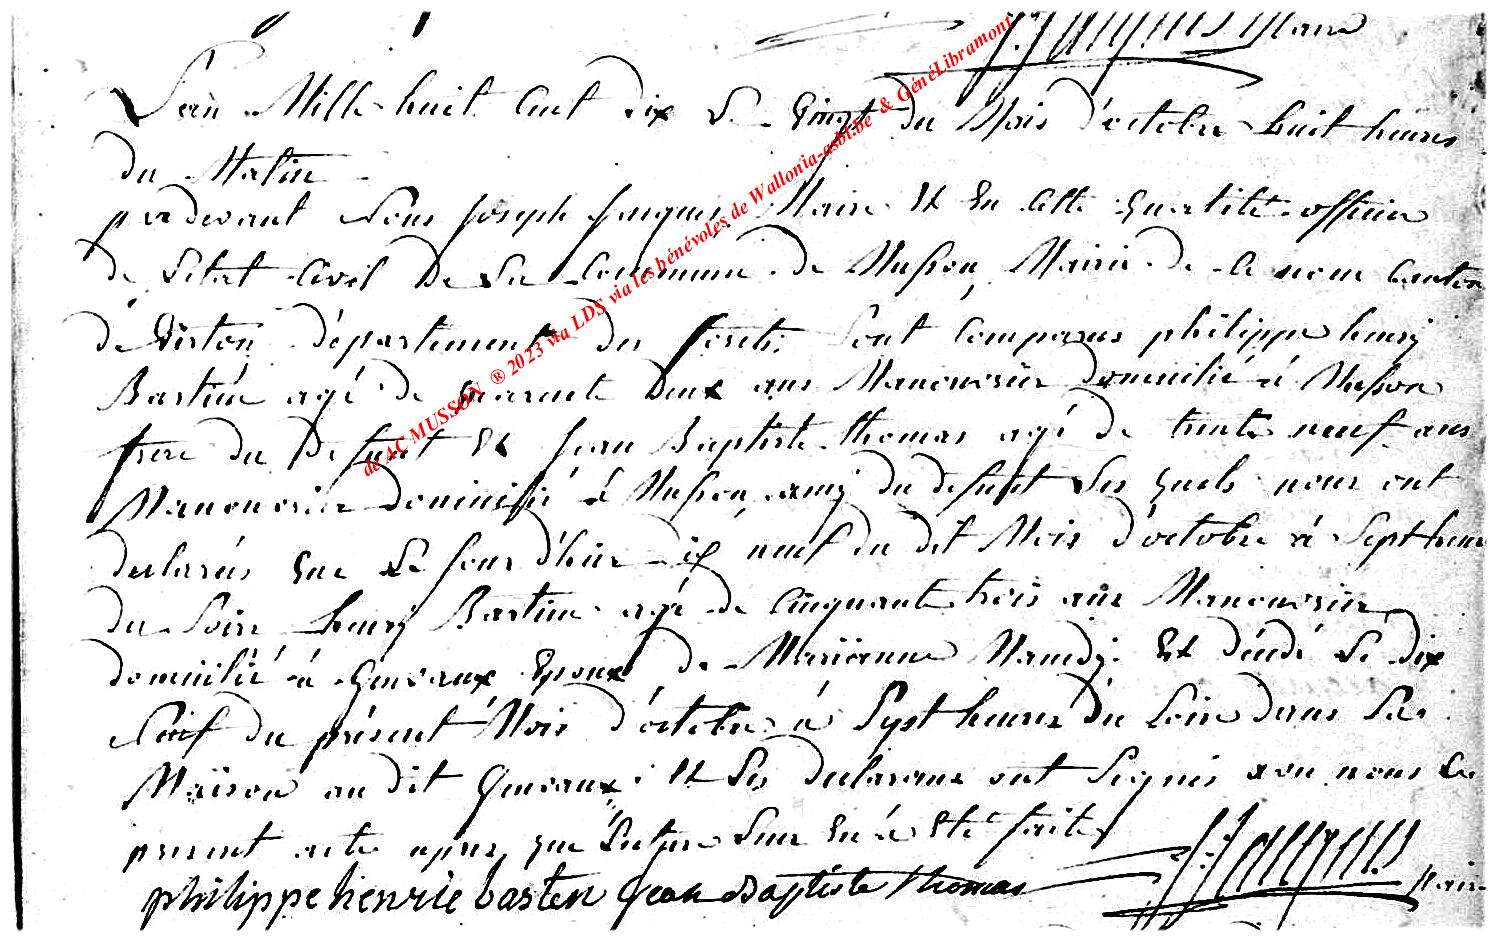 J. Jacques Maire
L'an Mille huit Cent dix Le Vingt du Mois d'octobre huit heures
du Matin
pardevant Nous Joseph Jacques Maire Et En Cette Quaalité officier
de L'etat Civil De La Commune de Musson Mairie de Ce nom Canton
de Virton département des forets Sont Comparus philippe henry
Bastin agé de quarante Deux ans Manouvrier domicilié à Musson
frere du Defunt Et Jean Baptiste thomas agé de trente neuf ans
Manouvrier domicilié à Musson amy du defunt Les quels nous ont
declarés que Le Jour d'hier dix neuf du dit Mois d'octobre à Sept heures
du Soir henry Bastin agé de Cinquante trois ans Manouvrier
domicilié à Epoux de Marianne Et décédé Le dix
neuf du présent Mois d'octobre à Sept heures du Soir dans Sa
Maison au dit Et Les declarans ont Signés avec nous Le
present acte apres que Lecture Leur En à Eté faite
philippe henrie basten Jean Baptiste thomas J. Jacques Maire
de AC MUSSON ® 2023 via LDS via les bénévoles de Wallonia-asbl.be & GénéLibramont